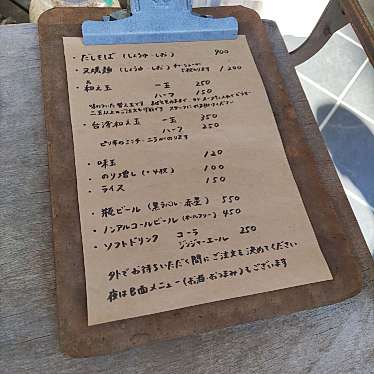 ・だしそば (しょうゆ・しお) 900
・叉焼麺 (しょうゆ・しお) チャーシューが5枚のります 1200
・和え玉 一玉 250
ハーフ 150
・台湾和え玉 一玉 350
ハーフ 250
ピリ辛のミンチ・ニラがのります
・味玉 120
・のり増し (+4枚) 100
・ライス 150
・瓶ビール (黒ラベル・赤星) 550
・ノンアルコールビール (オールフリー) 450
・ソフトドリンク コーラ 250
ジンジャーエール
外でお待ちいただく間にご注文を決めてください
夜はB面メニュー (お酒・おつまみ) もございます